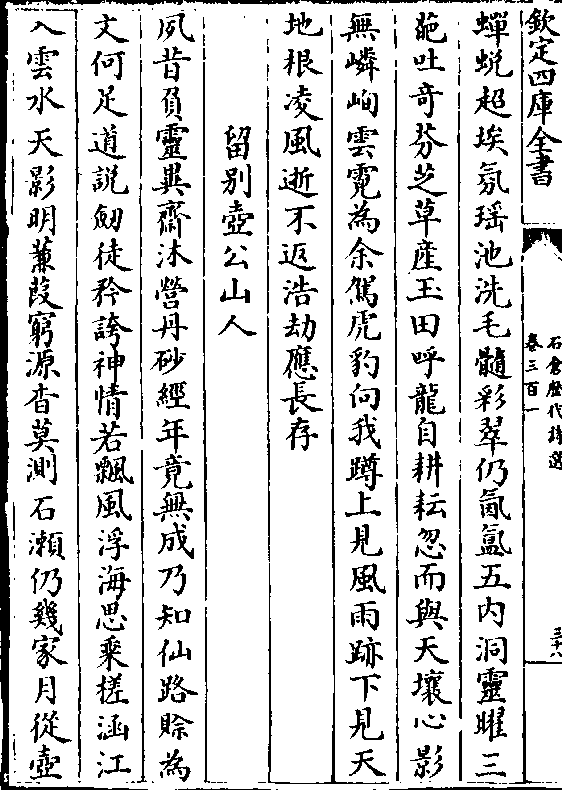 欽定四庫全書
石倉歷代詩選
卷三百一
三十八
蟬蛻超埃氛瑶池洗毛髓彩翠仍氤氲五内洞靈曜三
葩吐竒芬芝草産玉田呼龍自耕耘忽而與天壤心影
無嶙峋雲霓為余駕虎豹向我蹲上見風雨跡下見天
地根凌風逝不返浩劫應長存
留别壺公山人
夙昔負靈異齋沐營丹砂經年竟無成乃知仙路賒為
文何足道説劒徒矜誇神情若飄風浮海思乗槎涵江
入雲水天影明蒹葭窮源杳莫測石瀨仍幾家月從壺